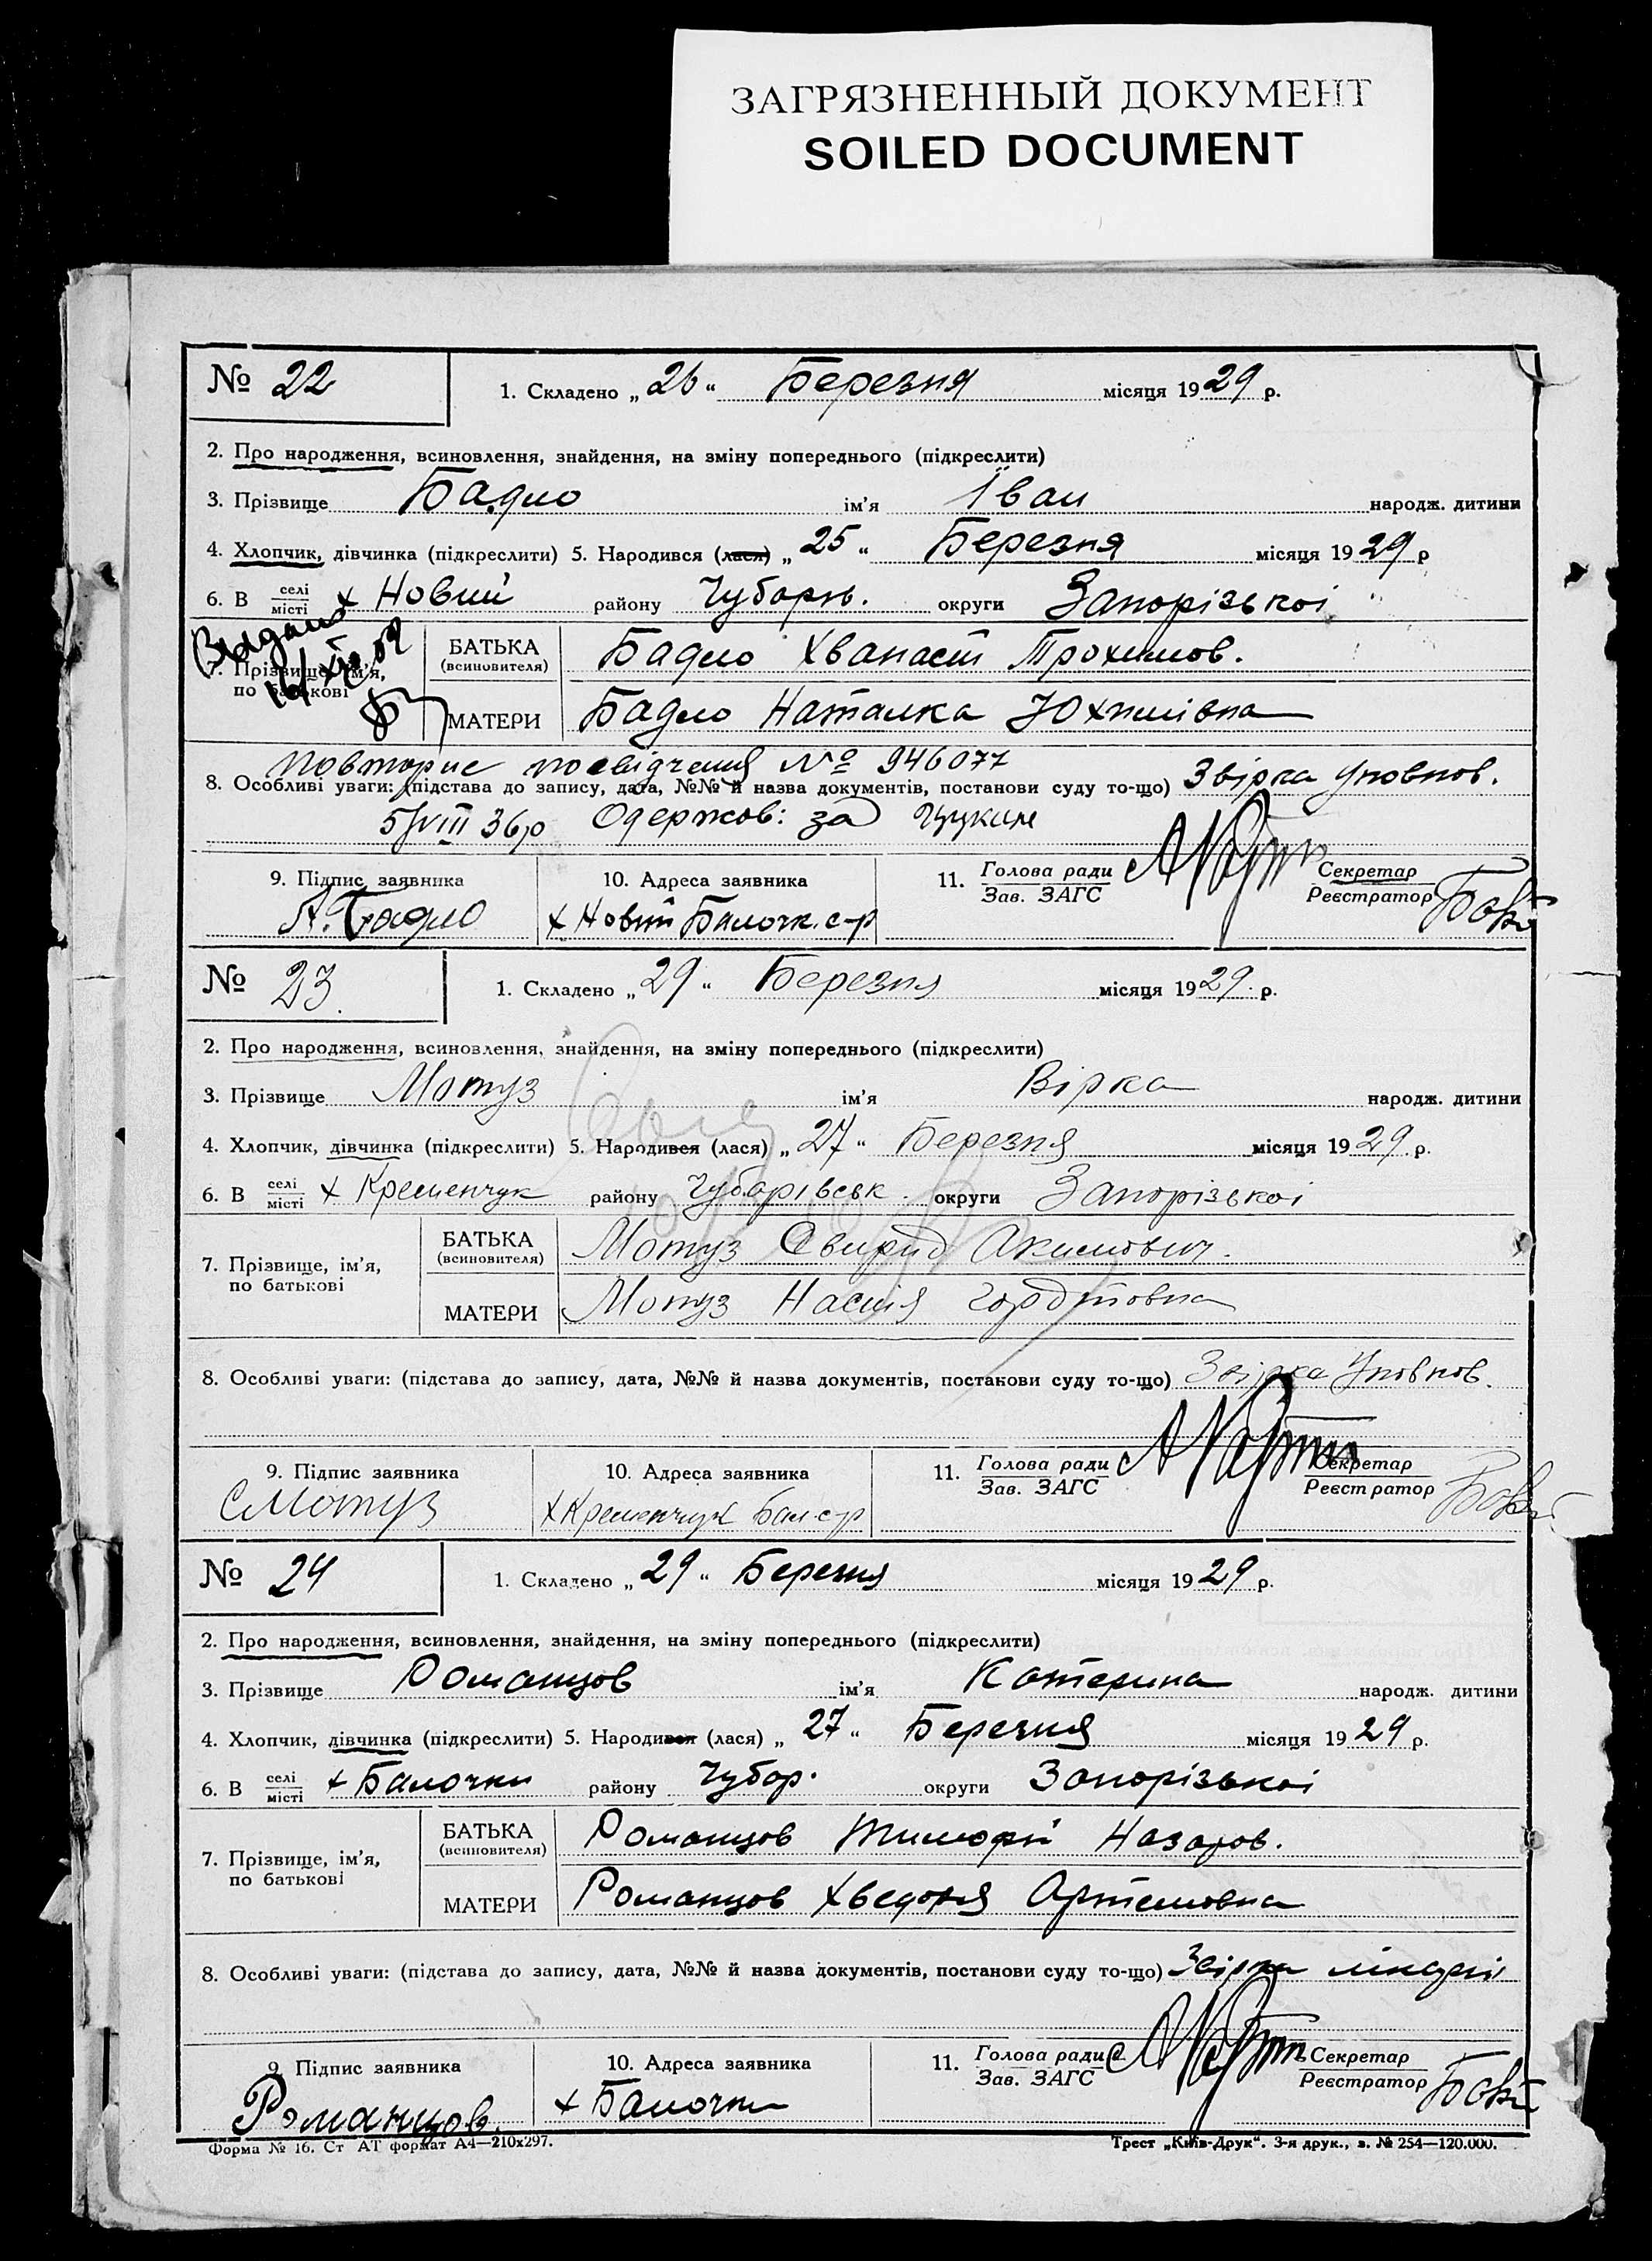 ЗАГРЯЗНЕННЫЙ ДОКУМЕНТ
SOILED DOCUMENT
№ 22
1. Складено „26“ Березня місяця 1929 р.
2. Про народження, всиновлення, знайдення, на зміну попереднього (підкреслити)
3. Прізвище Бадло ім'я Іван народж. дитини
4. Хлопчик, дівчинка (підкреслити) 5. Народився (лася) „25“ Березня місяця 1929 р
6. В селі місті х Новий району Чубарів. округи Запорізької
7. Прізвище, ім'я, по батькові
БАТЬКА (всиновителя) Бадло Хванаст Трохимов.
МАТЕРИ Бадло Наталка Юхимівна
Повторне посвідчення № 946077
8. Особливі уваги: (підстава до запису, дата, №№ й назва документів, постанови суду то-що) Звірка Уповнов.
5/VIII 36р Одержов: за
9. Підпис заявника
А. Бадло
10. Адреса заявника
х Новий Балочк. с-р
11. Голова ради Зав. ЗАГС
Секретар Реєстратор
№ 23.
1. Складено „29“ Березня місяця 1929. р.
2. Про народження, всиновлення, знайдення, на зміну попереднього (підкреслити)
3. Прізвище Мотуз ім'я Вірка народж. дитини
4. Хлопчик, дівчинка (підкреслити) 5. Народився (лася) „27“ Березня місяця 1929. р.
6. В селі місті х Кременчук району Чубарівськ. округи Запорізької
7. Прізвище, ім'я, по батькові
БАТЬКА (всиновителя) Мотуз Свирид Акимович.
МАТЕРИ Мотуз Настя Гордіовна
8. Особливі уваги: (підстава до запису, дата, №№ й назва документів, постанови суду то-що) Звірка Уповнов.
9. Підпис заявника
СМотуз
10. Адреса заявника
х Кременчук Бал. с-р
11. Голова ради Зав. ЗАГС
Секретар Реєстратор
№ 24
1. Складено „29“ Березня місяця 1929 р.
2. Про народження, всиновлення, знайдення, на зміну попереднього (підкреслити)
3. Прізвище Романцов ім'я Катерина народж. дитини
4. Хлопчик, дівчинка (підкреслити) 5. Народився (лася) „27“ Березня місяця 1929 р.
6. В селі місті х Балочки району Чубар. округи Запорізької
7. Прізвище, ім'я, по батькові
БАТЬКА (всиновителя) Романцов Тимофій Назаров.
МАТЕРИ Романцов Хведоря Артемовна
8. Особливі уваги: (підстава до запису, дата, №№ й назва документів, постанови суду то-що) Звірка
9. Підпис заявника
Романцов.
10. Адреса заявника
х Балочки
11. Голова ради Зав. ЗАГС
Секретар Реєстратор
Форма № 16. Ст АТ формат А4—210х297.
Трест „Київ-Друк“. 3-я друк., з. № 254—120.000.